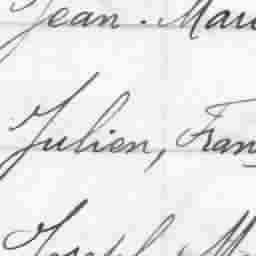 Jean. Mari
Julien, Fran
Joseph Ma